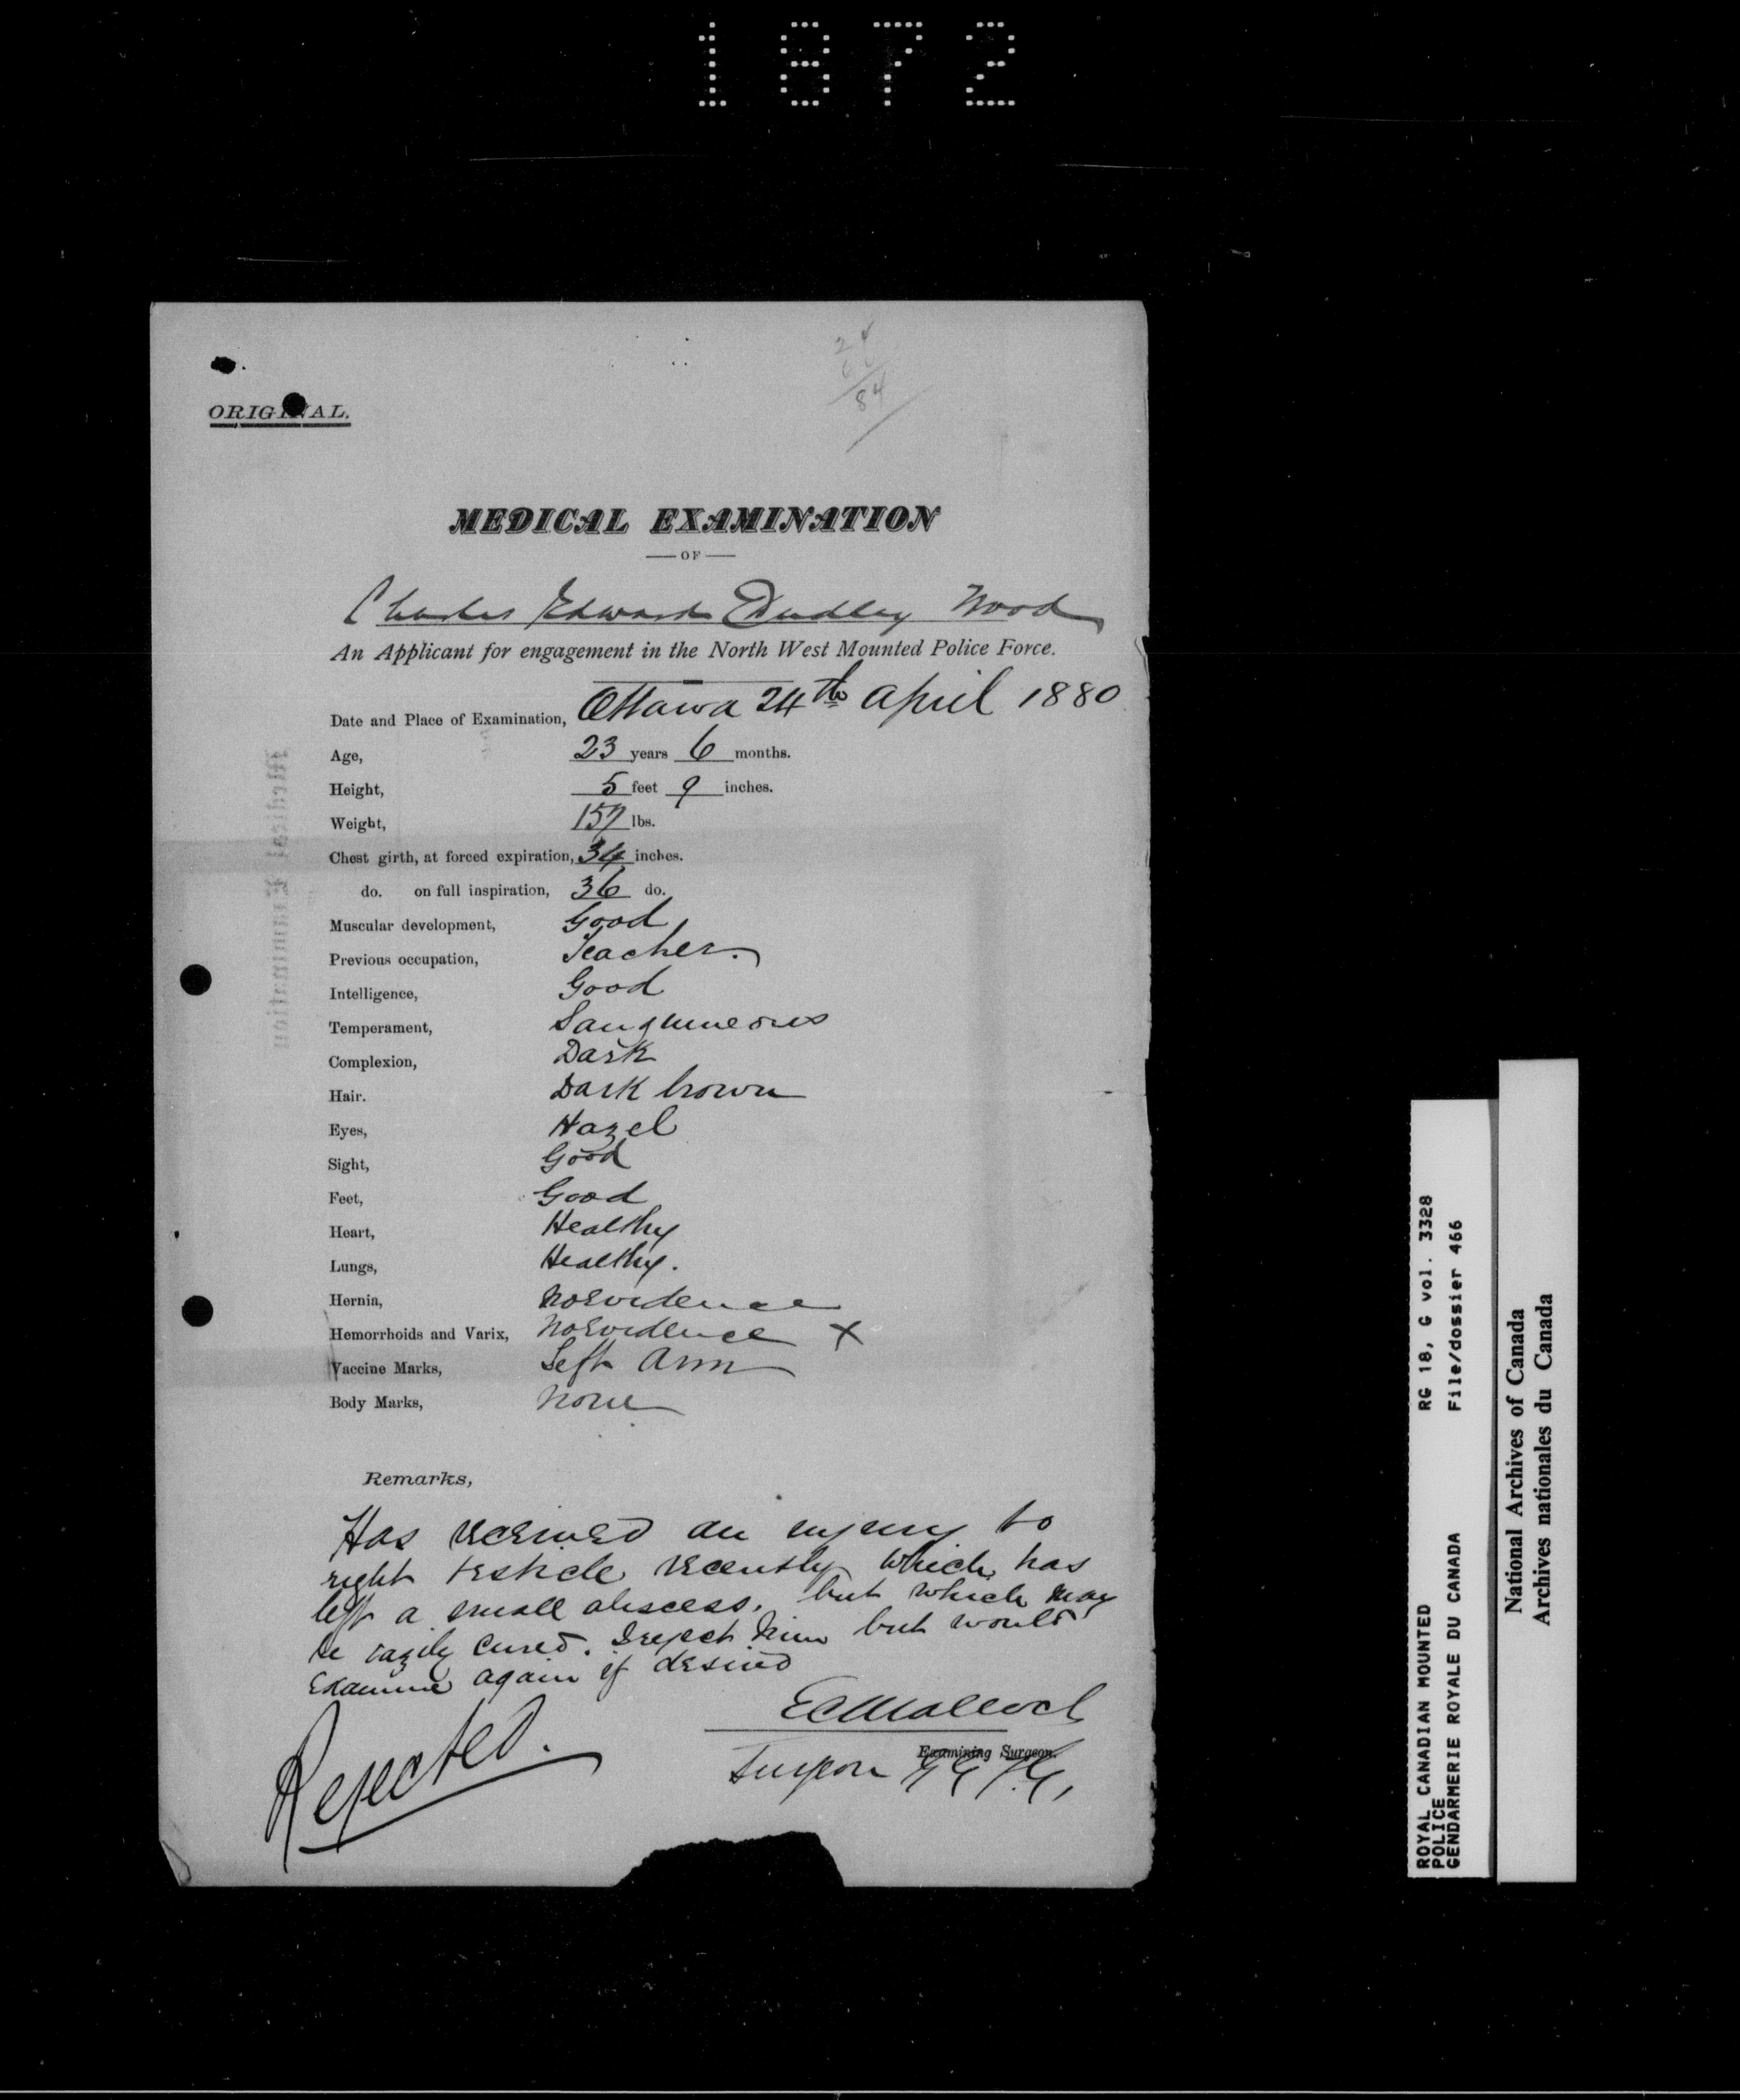 1872
24
84
ORIGINAL.
MEDICAL EXAMINATION
OF
Charles Edward Dudley Wood
An Applicant for engagement in the North West Mounted Police Force.
Date and Place of Examination, Ottawa 24th April 1880
Age, 23 years 6 months.
Height, 5 feet 9 inches.
Weight, 157 lbs.
Chest girth, at forced expiration, 34 inches.
do. on full inspiration, 36 do.
Muscular development, Good
Previous occupation, Teacher.
Intelligence, Good
Temperament, Sanguineous
Complexion, Dark
Hair. Dark brown
Eyes, Hazel
Sight, Good
Feet, Good
Heart, Healthy
Lungs, Healthy.
Hernia, No Evidence
Hemorrhoids and Varix, No Evidence X
Vaccine Marks, Left Arm
Body Marks, None
Remarks,
Has received an injury to
right testicle recently which has
left a small abscess, but which may
be easily cured. I reject him but would
examine again if desired
E C Malloch
Examining Surgeon.
Surgeon
Rejected.
Medical Examination
ROYAL CANADIAN MOUNTED RG 18, G vol. 3328
POLICE
GENDARMERIE ROYALE DU CANADA File/dossier 466
National Archives of Canada
Archives nationales du Canada